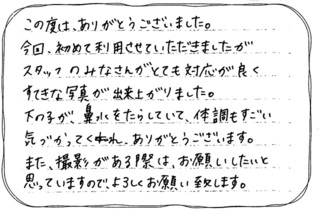 この度は、ありがとうございました。
今回、初めて利用させていただきましたが
スタッフのみなさんがとても対応が良く
すてきな写真が出来上がりました。
下の子が鼻水をたらしていて、体調もすごい
気づかってくれ、ありがとうございます。
また、撮影がある際は、お願いしたいと
思っていますので、よろしくお願い致します。